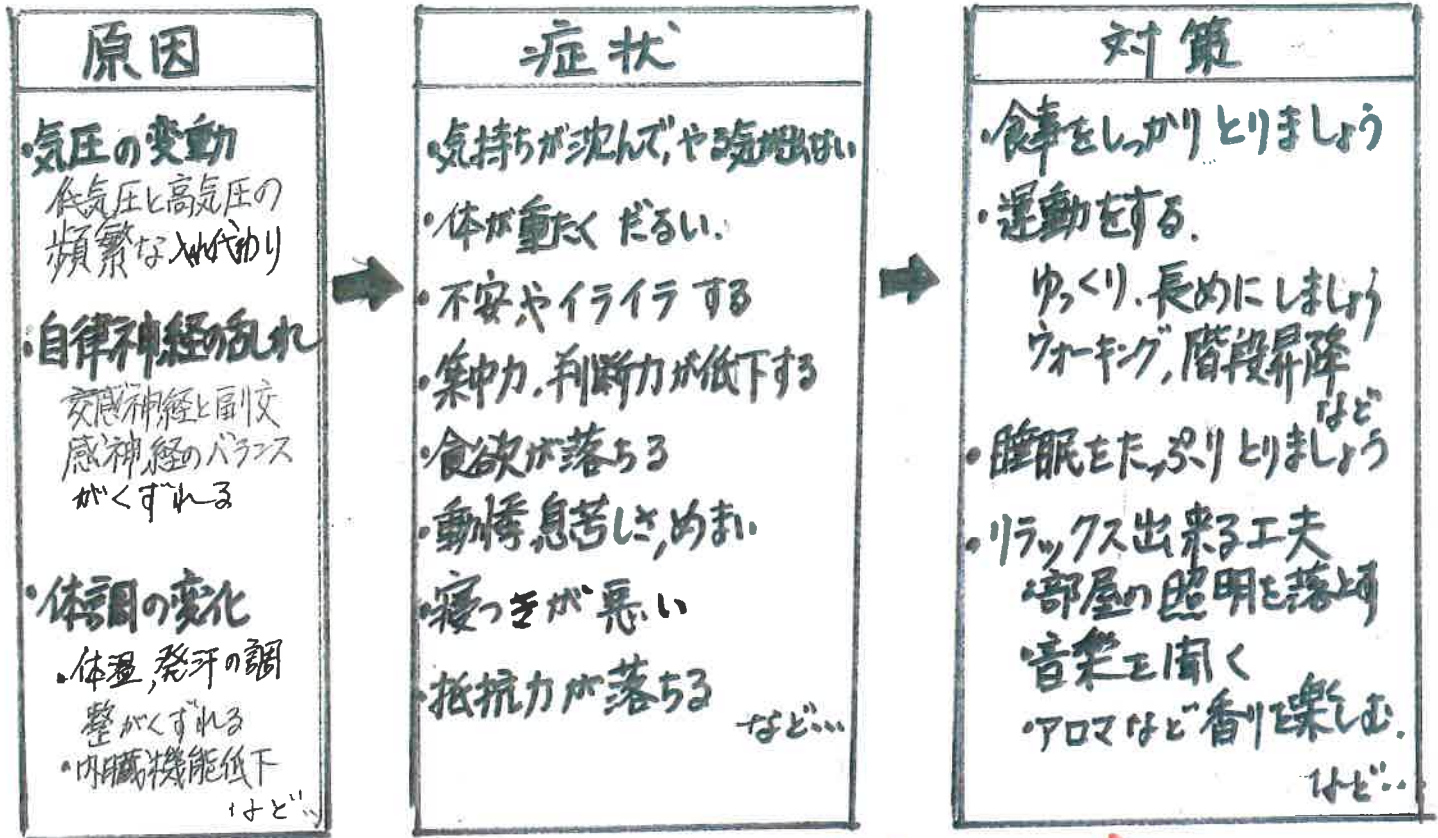 原因
・気圧の変動
低気圧と高気圧の
頻繁な入れ代わり
・自律神経の乱れ
交感神経と副交
感神経のバランス
がくずれる
・体調の変化
・体温,発汗の調
整がくずれる
・内臓機能低下
など…
症状
・気持ちが沈んで,やる気が出ない
・体が重たくだるい.
・不安やイライラする
・集中力,判断力が低下する
・食欲が落ちる
・動悸,息苦しさ,めまい
・寝つきが悪い
・抵抗力が落ちる
など…
対策
・食事をしっかりとりましょう
・運動をする.
ゆっくり,長めにしましょう
ウォーキング,階段昇降
など
・睡眠をたっぷりとりましょう
・リラックス出来る工夫
・部屋の照明を落とす
・音楽を聞く
・アロマなど香りを楽しむ.
など…